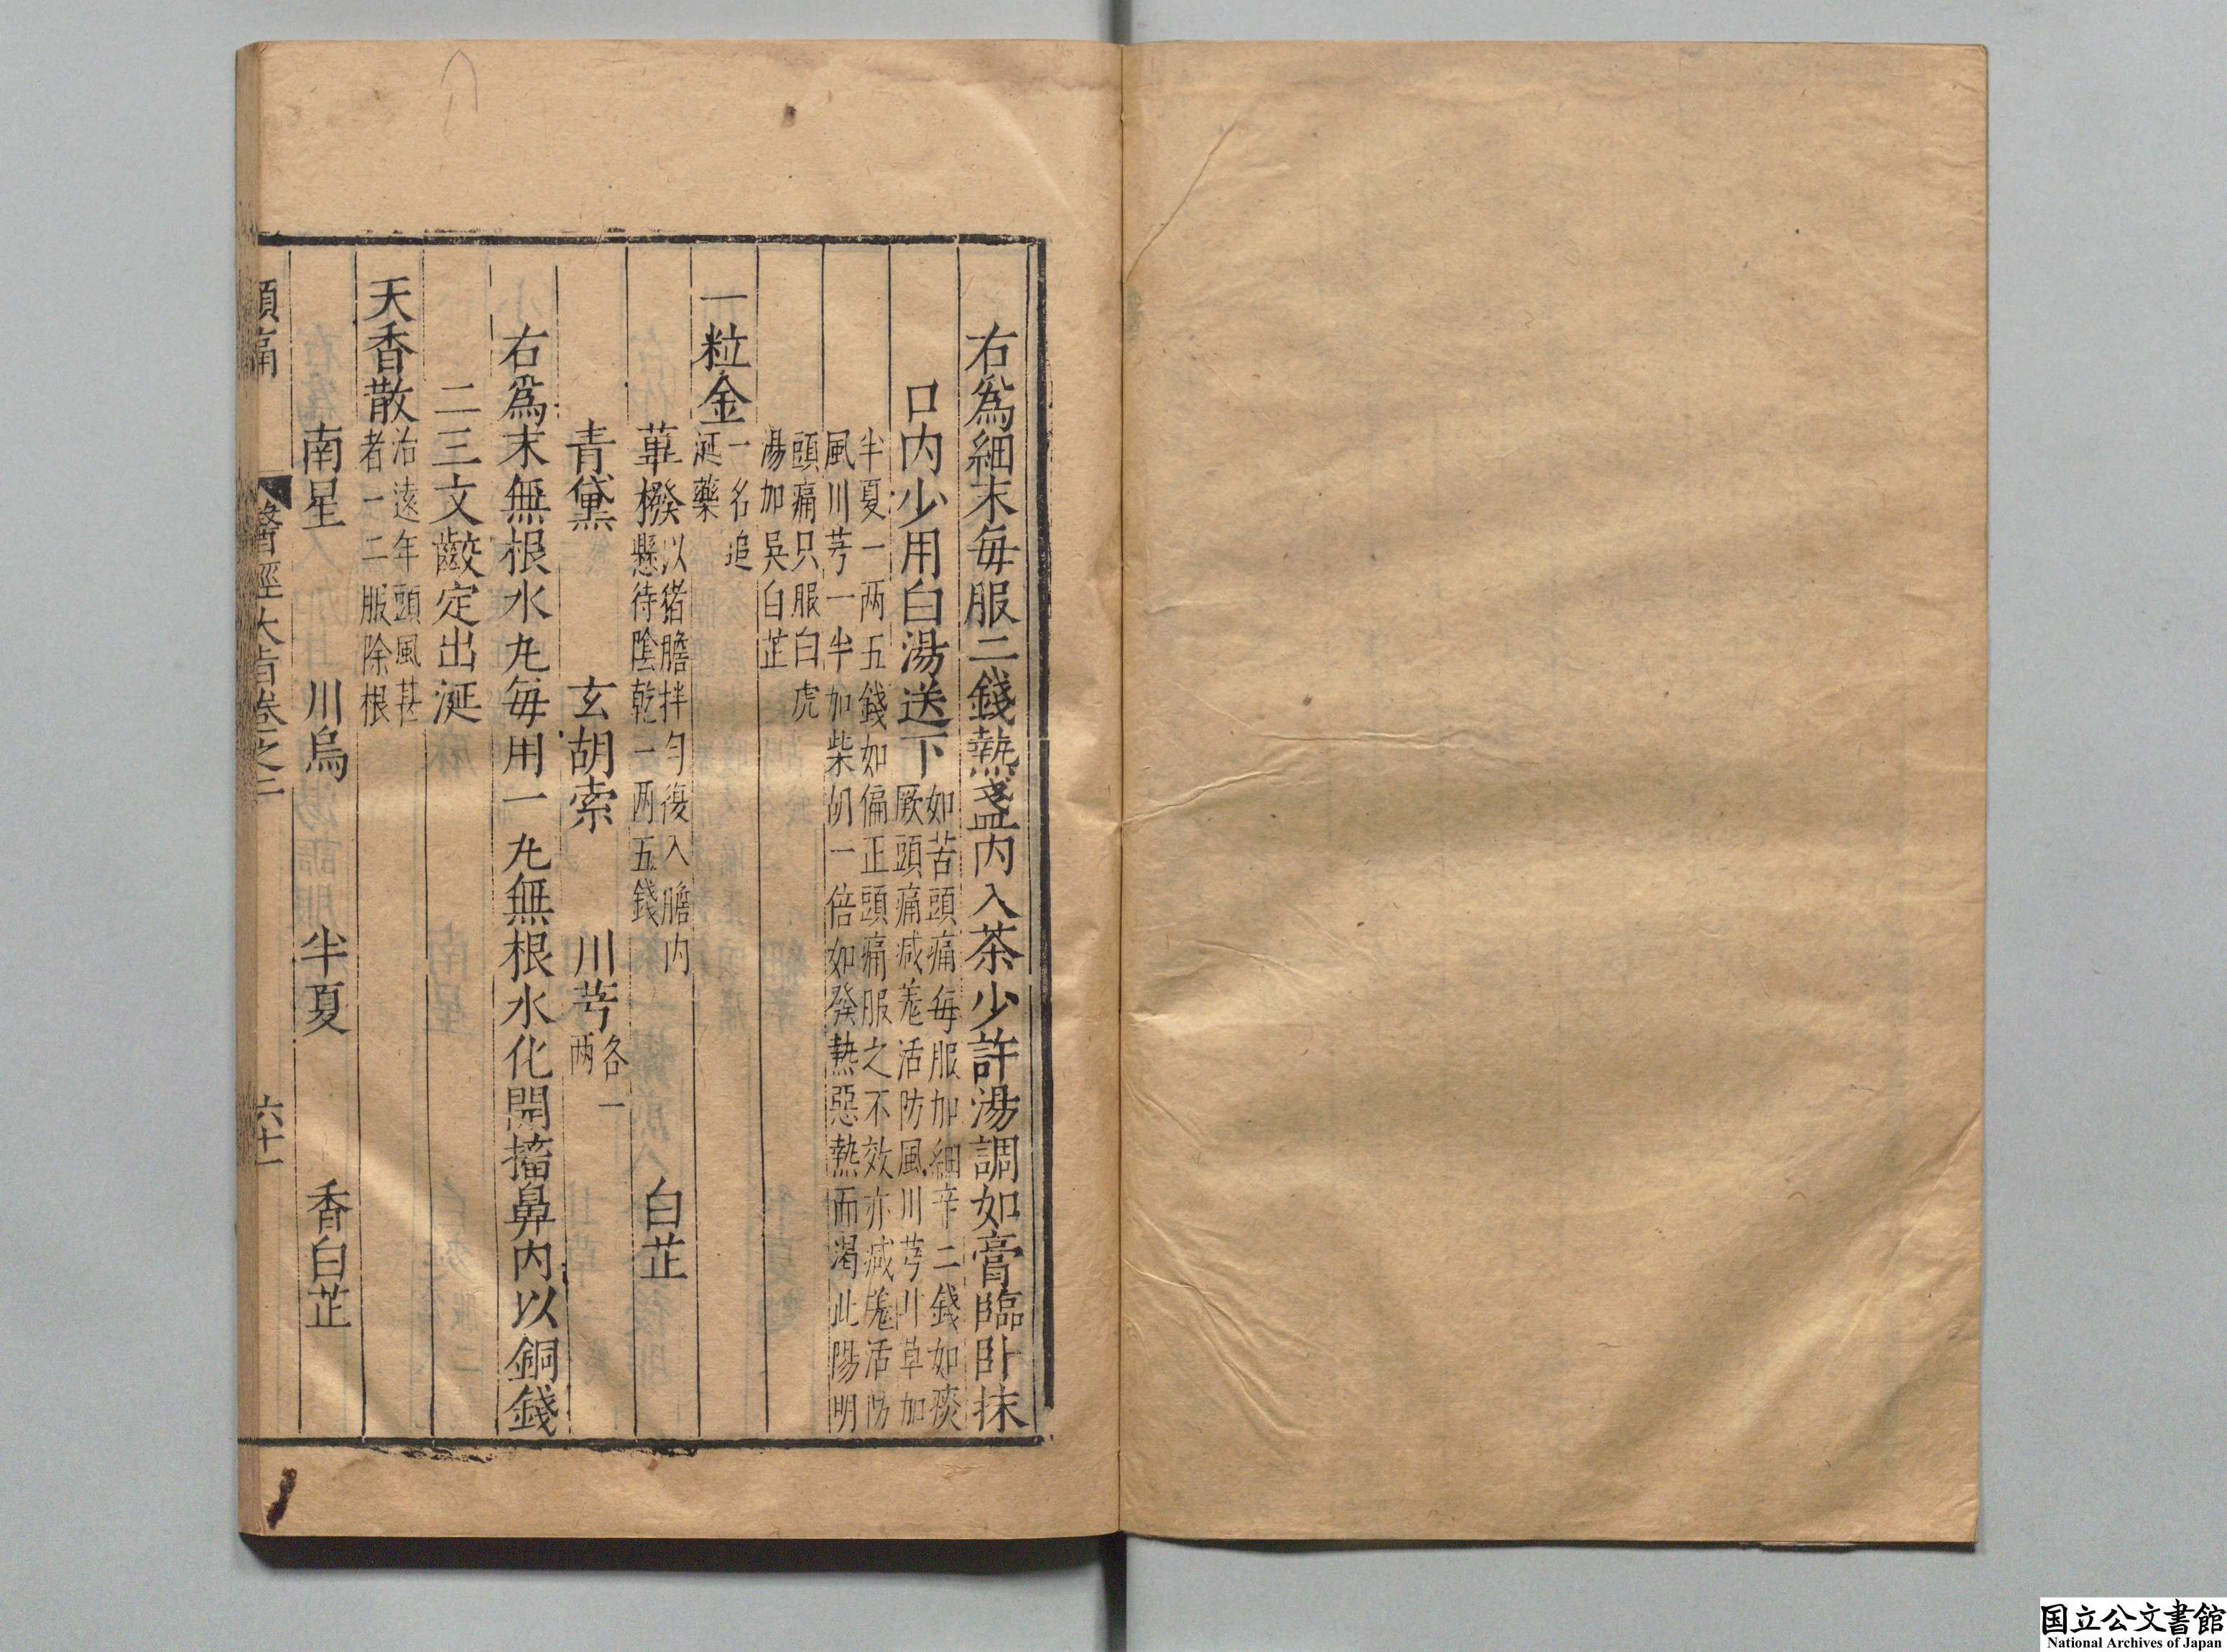 右爲細末每服二錢熱盞內入茶少許湯調如膏臨卧抹
口内少用白湯送下
如苦頭痛每服加細辛二錢如痰
厥頭痛减羗活防風川芎川草加
半夏一两五錢如偏正頭痛服之不效亦减羗活防
風川芎一半加柴胡一倍如發熱惡熱而渴此陽明
頭痛只服白虎
湯加吳白芷
一粒金
一名追
涎藥
蓽撥
以猪膽拌勻復入膽内
懸待陰乾一两五錢
白芷
青黛 玄胡索 川芎
各一
两
右爲末無根水丸每用一丸無根水化開㨨鼻内以銅錢
二三文齩定出涎
天香散
治遠年頭風甚
者一二服除根
南星 川烏 半夏 香白芷
頭痛 醫經大旨卷之二 六十一
国立公文書館
National Archives of Japan